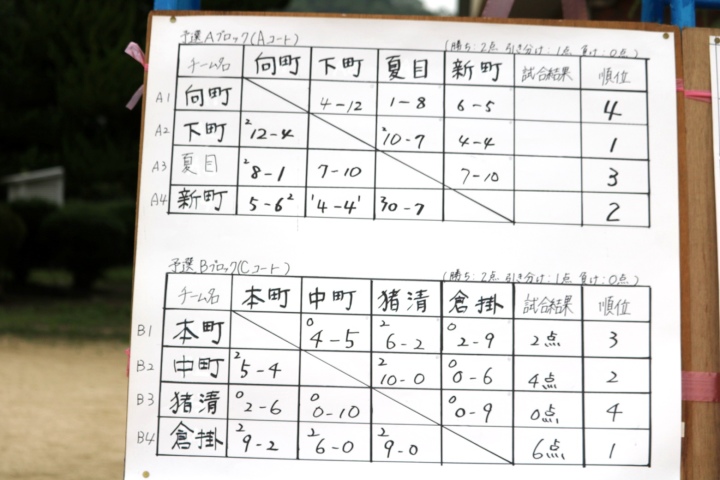 予選Aブロック(Aコート) (勝ち:2点 引き分け:1点 負け:0点)
チーム名 向町 下町 夏目 新町 試合結果 順位
A1 向町 4-12 1-8 6-5 4
A2 下町 2 12-4 2 10-7 4-4 1
A3 夏目 2 8-1 7-10 7-10 3
A4 新町 5-6 2 1 4-4 1 10-7 2
予選Bブロック(Cコート) (勝ち:2点 引き分け:1点 負け:0点)
チーム名 本町 中町 猪清 倉掛 試合結果 順位
B1 本町 0 4-5 2 6-2 0 2-9 2点 3
B2 中町 2 5-4 2 10-0 0 0-6 4点 2
B3 猪清 0 2-6 0 0-10 0 0-9 0点 4
B4 倉掛 2 9-2 2 6-0 2 9-0 6点 1